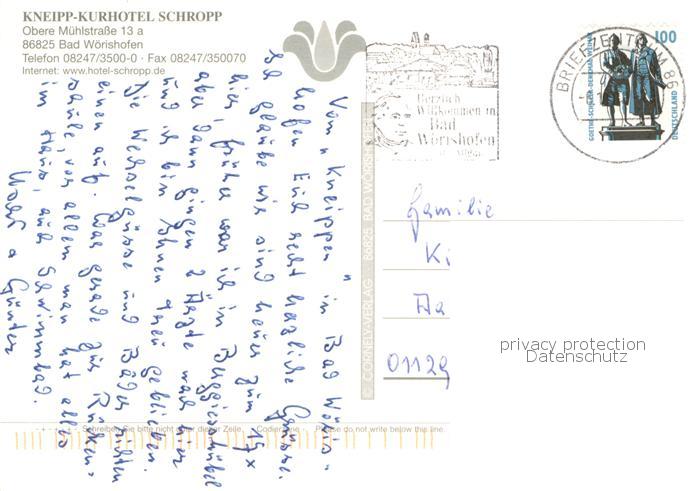 KNEIPP-KURHOTEL SCHROPP
Obere Mühlstraße 13 a
86825 Bad Wörishofen
Telefon 08247/3500-0 · Fax 08247/350070
Internet: www.hotel-schropp.de
Vom "Kneippen" in Bad Wöris=
hofen Euch recht herzliche Grüsse.
Ich glaube wir sind heuer zum 17x
hier, früher war ich in Berggiesshübel
aber dann gingen 2 Ärzte nach hier
und ich bin ihnen treu geblieben.
Die Wechselgüsse und Bäder
einen auf. War gerade zur Rücken=
säule, vor allem man hat alles
im Haus, auch Schwimmbad.
Günter
Herzlich
Willkommen in
Bad
Wörishofen
im Allgäu
BRIEFZENTRUM 86
100
GOETHE-SCHILLER-DENKMAL WEIMAR
DEUTSCHLAND
© CORNELY-VERLAG 86825 BAD WÖRISHOFEN
Familie
Ki
Aa
01129
privacy protection
Datenschutz
Schreiben Sie bitte nicht unter dieser Zeile. Codierzone - Please do not write below this line.